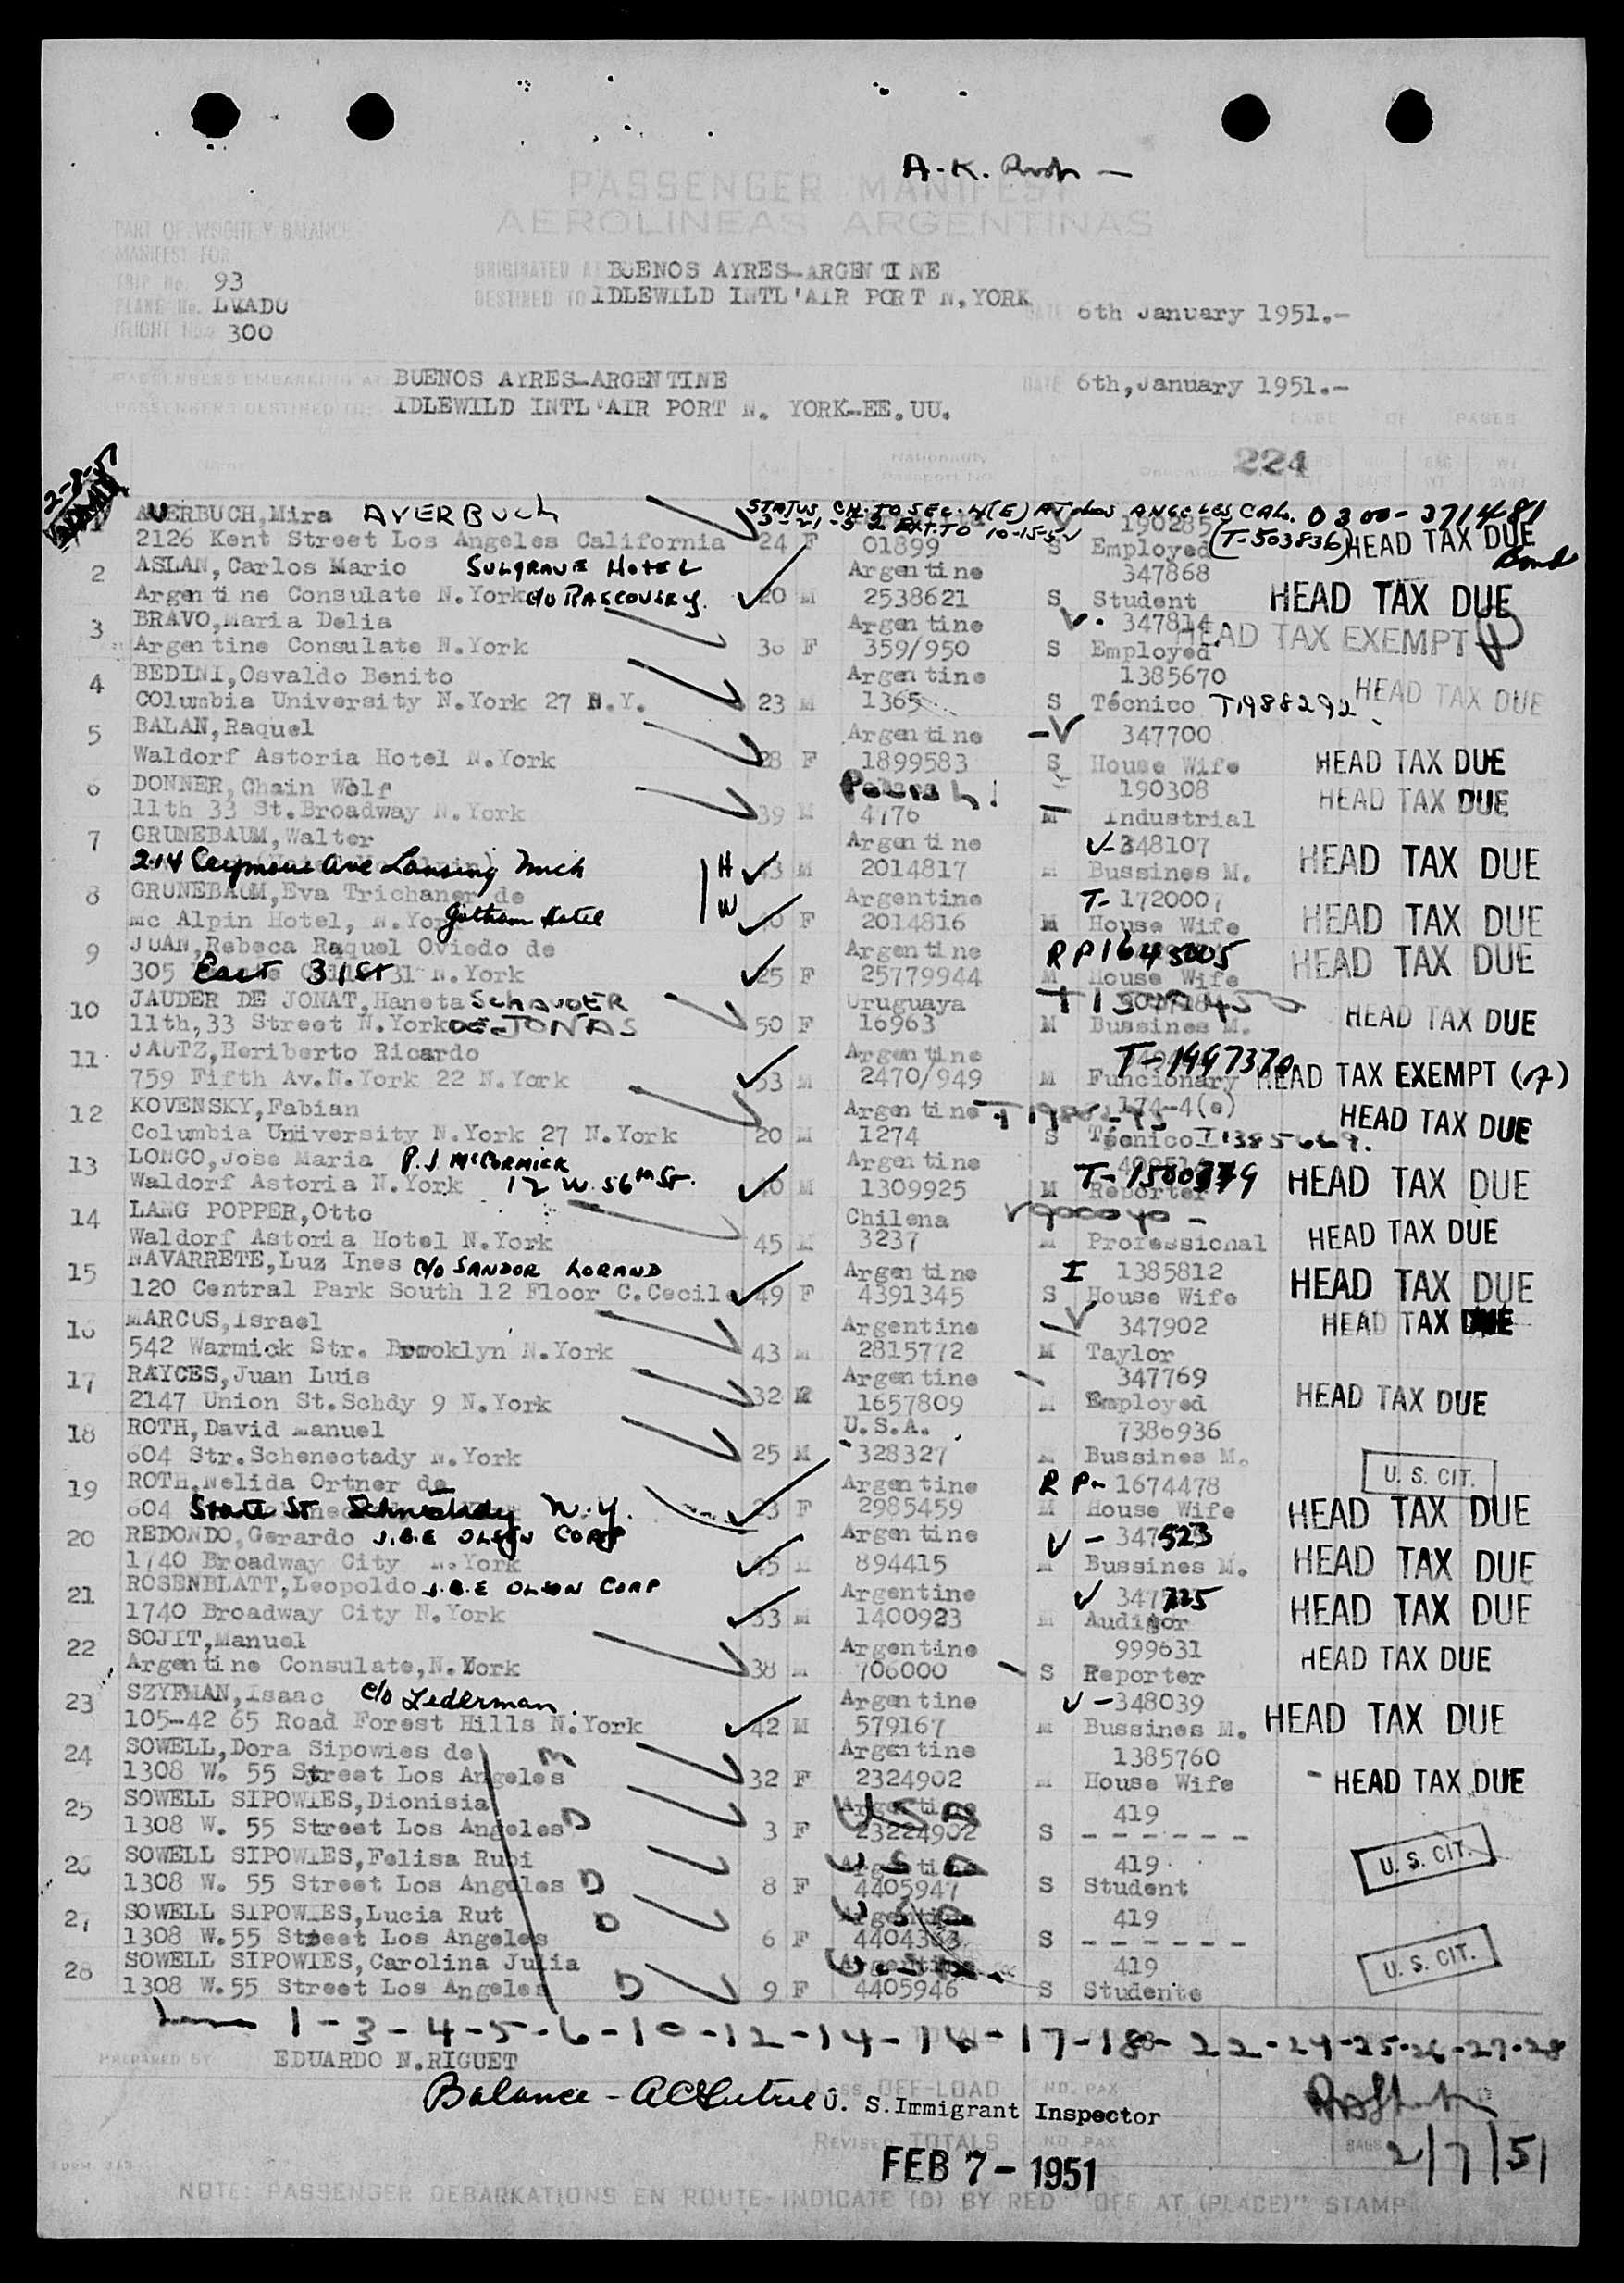 A.K.
PASSENGER MANIFEST
AEROLINEAS ARGENTINAS
PART OF WEIGHT Y BALANCE
MANIFEST FOR
TRIP No. 93
PLANE No. LVADU
FLIGHT No. 300
ORIGINATED AT BUENOS AYRES-ARGENTINE
DESTINED TO IDLEWILD INTL'AIR PORT N,YORK
DATE 6th January 1951.-
PASSENGERS EMBARKING AT: BUENOS AYRES-ARGENTINE DATE 6th,January 1951.-
PASSENGERS DESTINED TO: IDLEWILD INTL'AIR PORT N. YORK-EE.UU.
PAGE OF PAGES
Nationality Passport No. 224
2-8-51
STATUS CH. TO SEC. 4(E) AT LOS ANGELES CAL. 0300-371481
3-21-52 EXT. TO 10-15-52
AVERBUCH,Mira AVERBUCH 190285
2126 Kent Street Los Angeles California 24 F 01899 S Employed (T-503836) HEAD TAX DUE
Bond
2 ASLAN,Carlos Mario SULGRAVE HOTEL Argentine 347868
Argentine Consulate N.York c/o RASCOVSKY. 20 M 2538621 S Student HEAD TAX DUE
3 BRAVO,Maria Delia Argentine 347814
Argentine Consulate N.York 30 F 359/950 S Employed HEAD TAX EXEMPT
4 BEDINI,Osvaldo Benito Argentine 1385670
COlumbia University N.York 27 N.Y. 23 M 1365 S Técnico T1988292 HEAD TAX DUE
5 BALAN,Raquel Argentine 347700
Waldorf Astoria Hotel N.York 28 F 1899583 S House Wife HEAD TAX DUE
6 DONNER,Chain Wolf Polish 190308 HEAD TAX DUE
11th 33 St.Broadway N.York 39 M 4776 M Industrial
7 GRUNEBAUM,Walter Argentine V-348107
214 Seymour Ave Lansing Mich H 43 M 2014817 M Bussines M. HEAD TAX DUE
8 GRUNEBAUM,Eva Trichaner de Argentine T-1720007
Mc Alpin Hotel, N.York Gotham Hotel W F 2014816 M House Wife HEAD TAX DUE
9 JUAN,Rebeca Raquel Oviedo de Argentine RP1645005
305 East 31st N.York 25 F 25779944 M House Wife HEAD TAX DUE
10 JAUDER DE JONAT,Haneta SCHAUDER Uruguaya
11th,33 Street N.York DE JONAS 50 F 16963 M Bussines M. HEAD TAX DUE
11 JAUTZ,Heriberto Ricardo Argentine T-1997370
759 Fifth Av.N.York 22 N.York 53 M 2470/949 M Funcionary HEAD TAX EXEMPT (17)
12 KOVENSKY,Fabian Argentine 174-4(e)
Columbia University N.York 27 N.York 20 M 1274 S Técnico I1385669. HEAD TAX DUE
13 LONGO,Jose Maria P.J. McCORMICK Argentine
Waldorf Astoria N.York 12 W. 56th St. 40 M 1309925 M Reporter T-1500379 HEAD TAX DUE
14 LANG POPPER,Otto Chilena V900040-
Waldorf Astoria Hotel N.York 45 M 3237 M Professional HEAD TAX DUE
15 NAVARRETE,Luz Ines c/o SANDOR LORAND Argentine I 1385812
120 Central Park South 12 Floor C.Cecile 49 F 4391345 S House Wife HEAD TAX DUE
16 MARCUS,Israel Argentine 347902 HEAD TAX DUE
542 Warmick Str. Brooklyn N.York 43 M 2815772 M Taylor
17 RAYCES,Juan Luis Argentine 347769
2147 Union St.Schdy 9 N.York 32 M 1657809 M Employed HEAD TAX DUE
18 ROTH,David Manuel U.S.A. 7386936
604 Str.Schenectady N.York 25 M 328327 M Bussines M. U. S. CIT.
19 ROTH,Nelida Ortner de Argentine RP-1674478
604 State St Schenectady N.Y. 23 F 2985459 M House Wife HEAD TAX DUE
20 REDONDO,Gerardo J.B.E OLSON CORP Argentine V-347523
1740 Broadway City N.York 45 M 894415 M Bussines M. HEAD TAX DUE
21 ROSENBLATT,Leopoldo J.B.E OLSON CORP Argentine V 347725
1740 Broadway City N.York 33 M 1400923 M Auditor HEAD TAX DUE
22 SOJIT,Manuel Argentine 999631
Argentine Consulate,N.York 38 M 706000 S Reporter HEAD TAX DUE
23 SZYFMAN,Isaac c/o Lederman. Argentine V-348039
105-42 65 Road Forest Hills N.York 42 M 579167 M Bussines M. HEAD TAX DUE
24 SOWELL,Dora Sipowies de Argentine 1385760
1308 W. 55 Street Los Angeles 32 F 2324902 M House Wife - HEAD TAX DUE
25 SOWELL SIPOWIES,Dionisia Argentine USA 419
1308 W. 55 Street Los Angeles D 3 F 23224902 S - - - - - -
26 SOWELL SIPOWIES,Felisa Rubi Argentine USA 419 U. S. CIT.
1308 W. 55 Street Los Angeles D 8 F 4405947 S Student
27 SOWELL SIPOWIES,Lucia Rut Argentine USA 419
1308 W.55 Street Los Angeles D 6 F 4404363 S - - - - - -
28 SOWELL SIPOWIES,Carolina Julia Argentine 419 U. S. CIT.
1308 W.55 Street Los Angeles D 9 F 4405946 S Studente
1-3-4-5-6-10-12-14-16-17-18-22-24-25-26-27-28
PREPARED BY EDUARDO N.RIGUET
Balance - U. S.Immigrant Inspector
LESS OFF-LOAD NO. PAX
REVISED TOTALS NO. PAX BAGS
2/7/51
FEB 7 - 1951
NOTE: PASSENGER DEBARKATIONS EN ROUTE-INDICATE (D) BY RED "OFF AT (PLACE)" STAMP